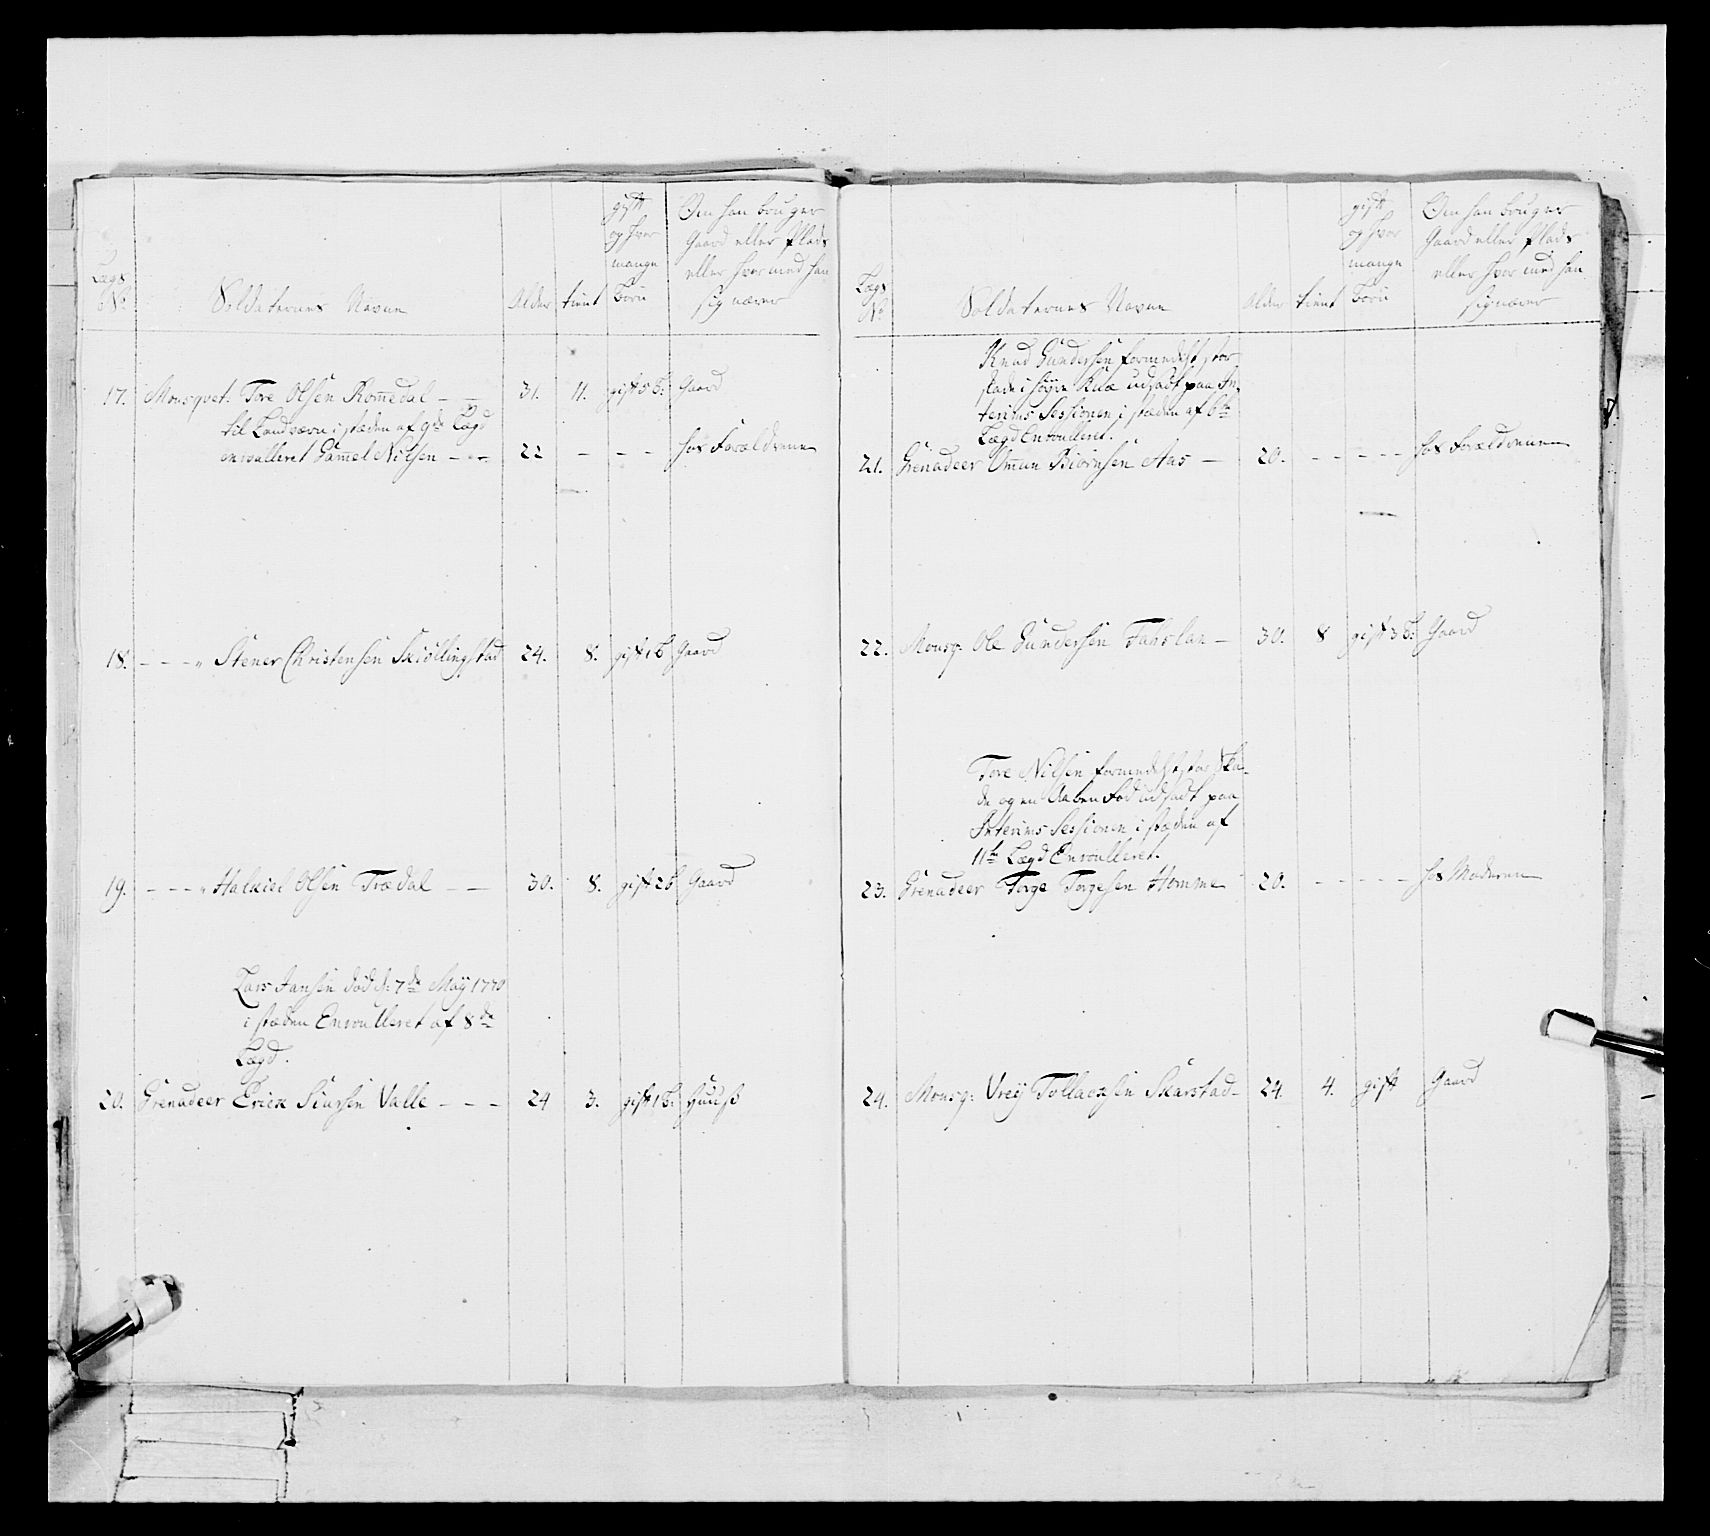 Lægs No
Soldaternes Navne
Alder
tient
gift og hvor mange Børn
Om han bruger Gaard eller Plads eller hvor med han sig nærer
17. Mousqvet. Tore Olsen Rom̅edal — — 31. 11. gift 5 B: Gaard
til Landværn i stæden af 9de Lægd
enroulleret Gam̅el Nilsen — — 22 — — — hos Forældrene
18. — — — „ Stener Christensen Skiöllingstad 24. 8. gift 1 B Gaard
19. — — — „ Halkiel Olsen Trædal — — 30. 8. gift 2 B Gaard
Lars Jansen död d: 7de Maÿ 1770
i stæden Enroulleret af 8de
Lægd.
20. Grenadeer Erick Siursen Valle — — — 24 3. gift 1 B: Huuß
Lægs No
Soldaternes Navne
Alder
tient
gift og hvor mange Børn
Om han bruger Gaard eller Plads eller hvor med han sig nærer
Knud Gundersen formedelst stor
skade i höÿre Knæ udsadt paa In-
terims Sessionen i stæden af 6te
Lægd Enroulleret.
21. Grenadeer Om̅un Biörnsen Aas — 20. — — — — — hos Forældrene
22. Mousq: Ole Gundersen — 30. 8 gift 3 B: Gaard
Tore Nilsen formedelst stor Ska-
de og en Aaben Fod udsadt paa
Interims Sessionen i stæden af
11te Lægd Enroulleret.
23. Grenadeer Torge Torgesen Homme 20. — — — — — hos Moderen
24. Mousq: Vreÿ Tollacksen Skarstad — 24. 4. gift Gaard